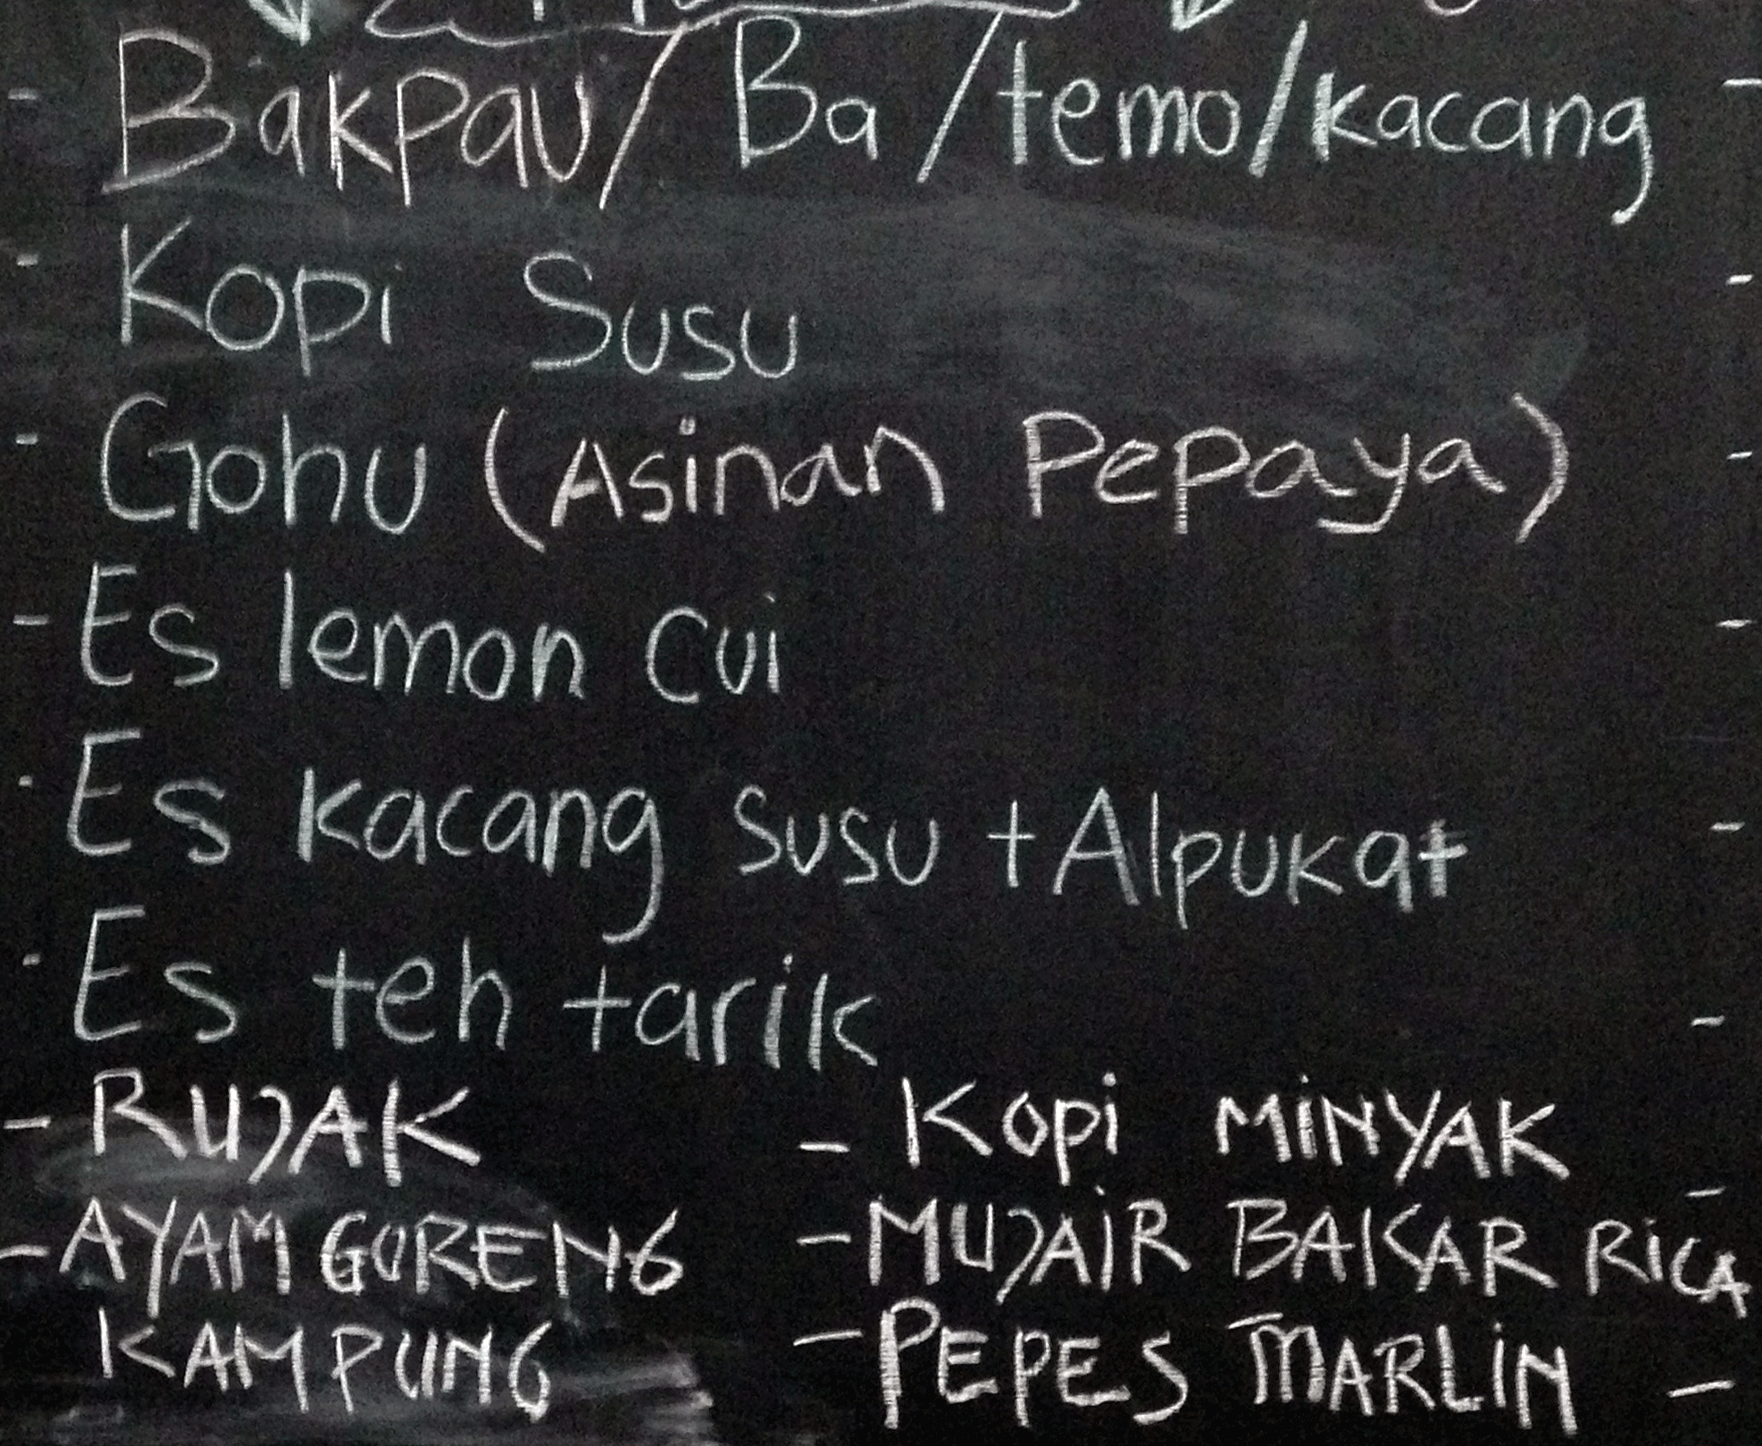 - Bakpau / Ba / temo / kacang
- Kopi Susu
- Gohu (Asinan Pepaya)
- Es lemon Cui
- Es kacang susu + Alpukat
- Es teh tarik
- RUJAK
- KOPi MiNYAK
- AYAM GORENG
- MUJAiR BAKAR RiCA
KAMPUNG
- PEPES MARLiN